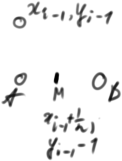 xᵢ₋₁, yᵢ₋₁
A M B
xᵢ₋₁+½,
yᵢ₋₁-1